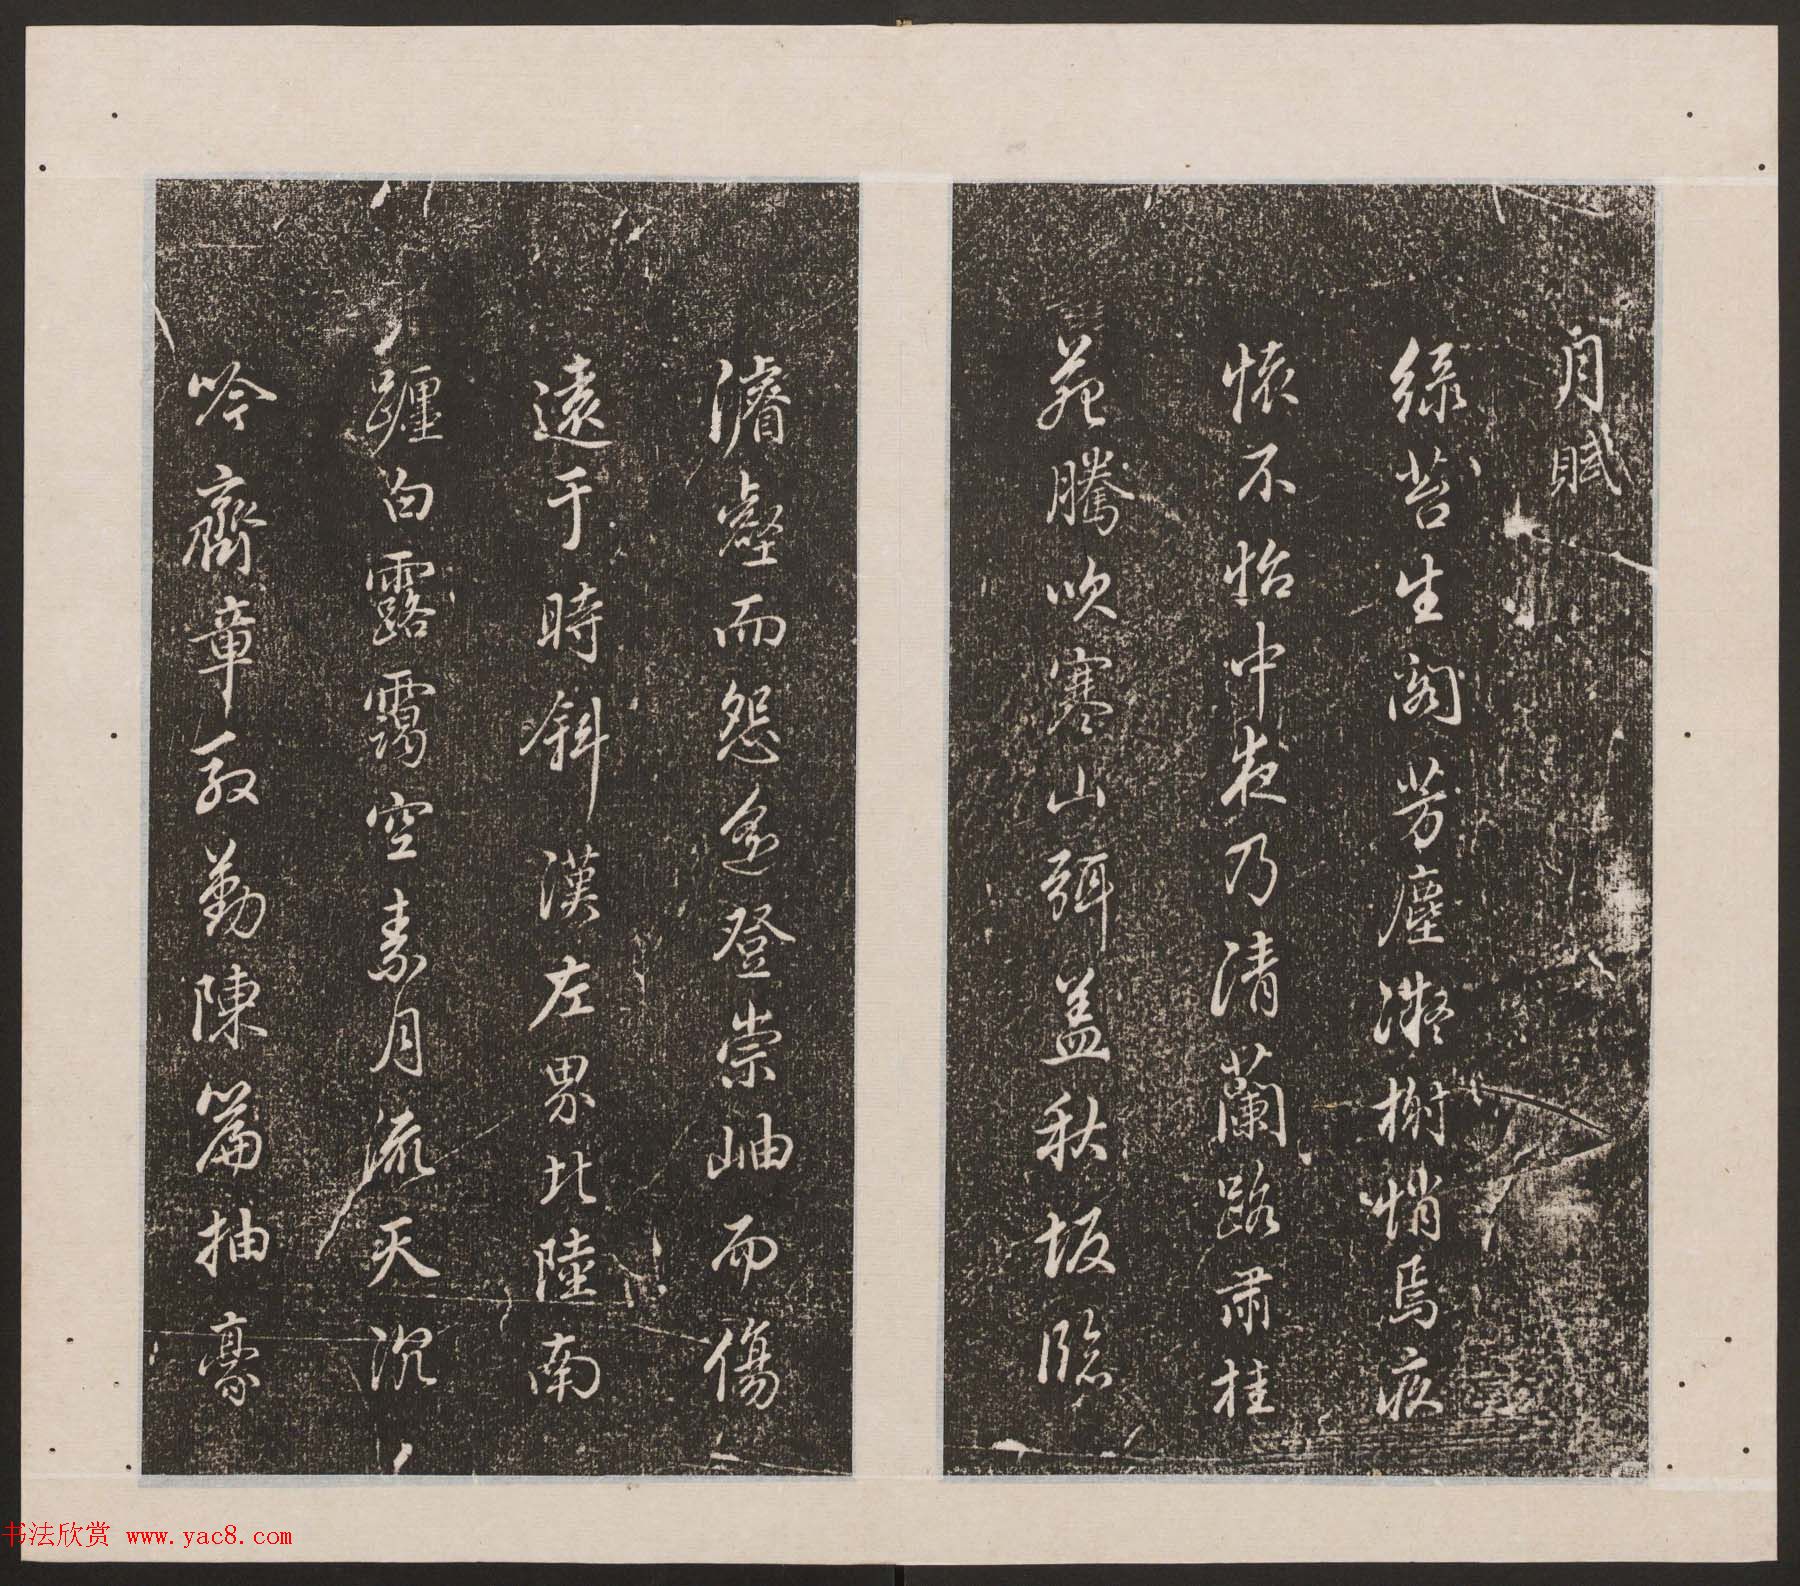 月賦
綠苔生閣芳塵凝榭悄焉疚
懷不怡中夜乃清蘭路肅桂
苑騰吹寒山弭盖秋坂臨
濬壑而怨遙登崇岫而傷
遠于時斜漢左界北陸南
躔白露靄空素月流天沉
吟齊章殷勤陳篇抽豪
书法欣赏 www.yac8.com